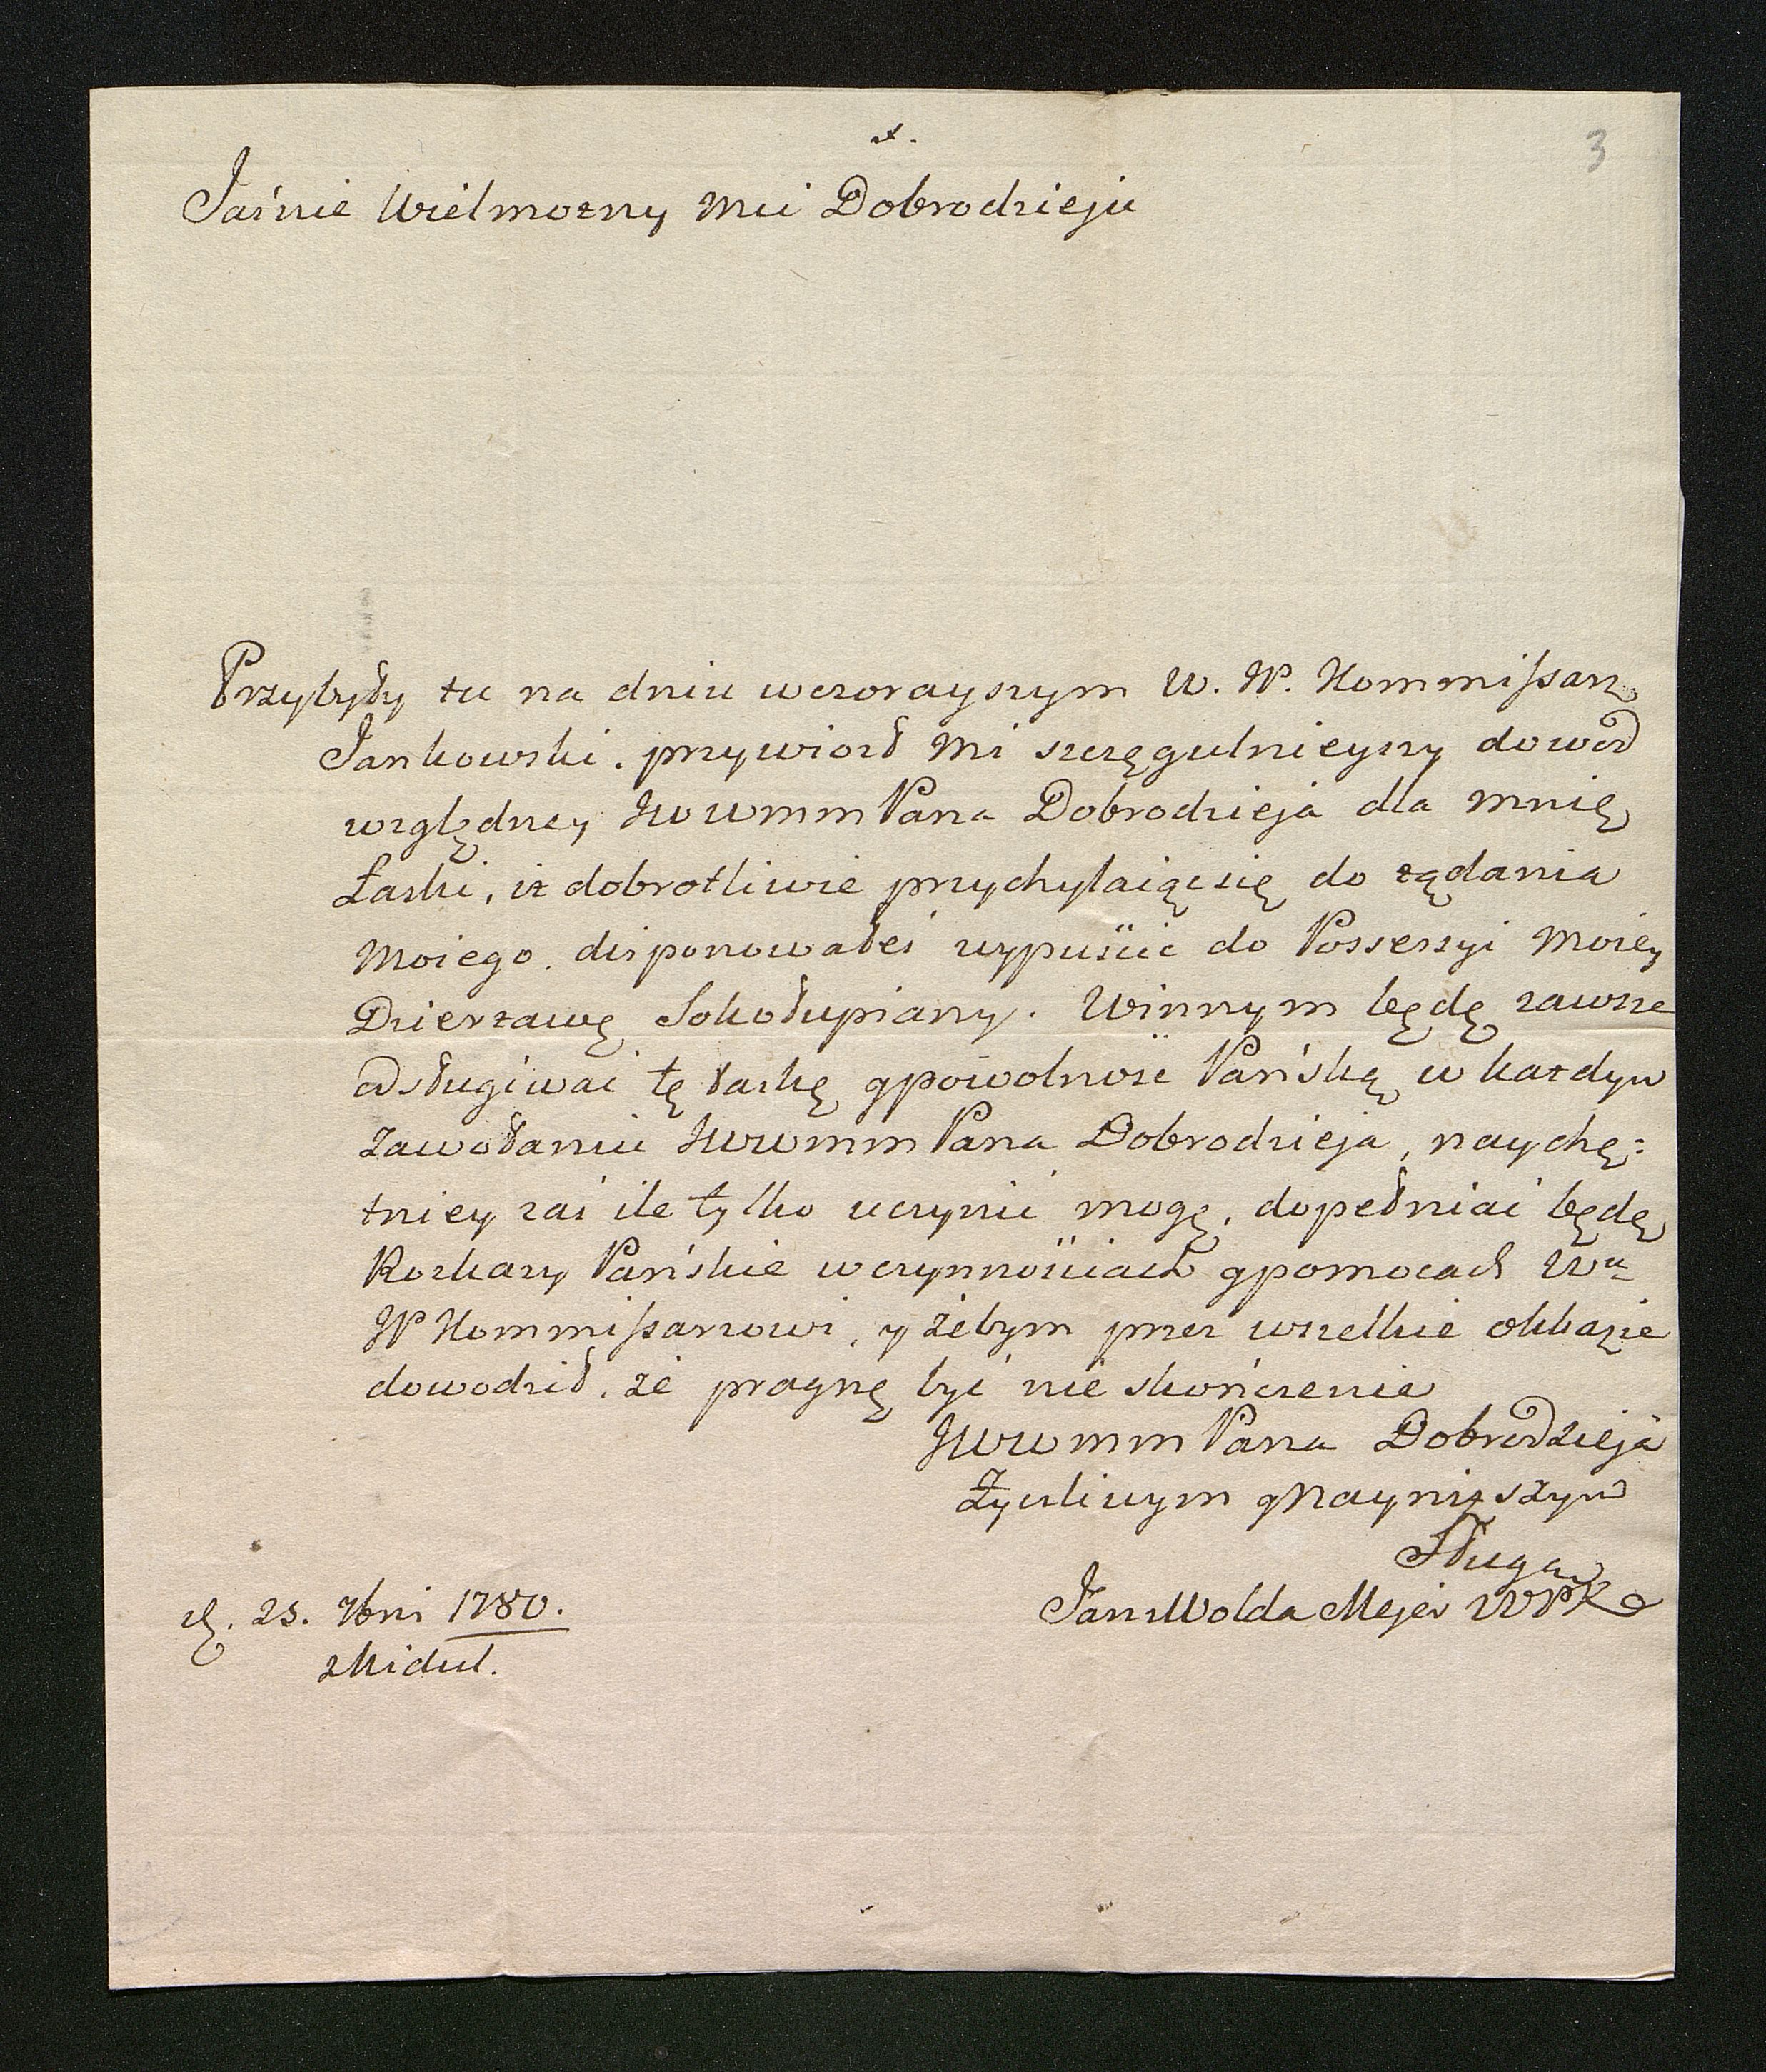 3
Jaśnie Wielmożny Mci Dobrodzieju
Przybyły tu na dniu wczorayszym W. JP. Kommissarz
Jankowski. przywiozł mi szczęgulnieyszy dowod
względney JWWMM Pana Dobrodzieja dla mnię
Łaski, iż dobrotliwie przychylaiąc się do żądania
Moiego. disponowałeś wypuścic do Possessyi Moiey
Dzierżawę Sokołupiany. Winnym będę zawsze
odsługiwać tę łaskę y powolność Pańską w każdym
zawołaniu JWWMM Pana Dobrodzieja, naychę=
tniey zaś ile tylko uczynić mogę, dopełniać będę
Rozkazy Pańskie w czynnościach y pomocach Wu
JP Kommissarzowi, y żebym przez wszelkie okkazie
dowodził, że pragnę być nieskończenie
JWWMM Pana Dobrodzieja
Życzliwym y Nayniższym
Sługą
Jan Wolda Mejer
d. 25. 7bri 1780.
z Kidul.